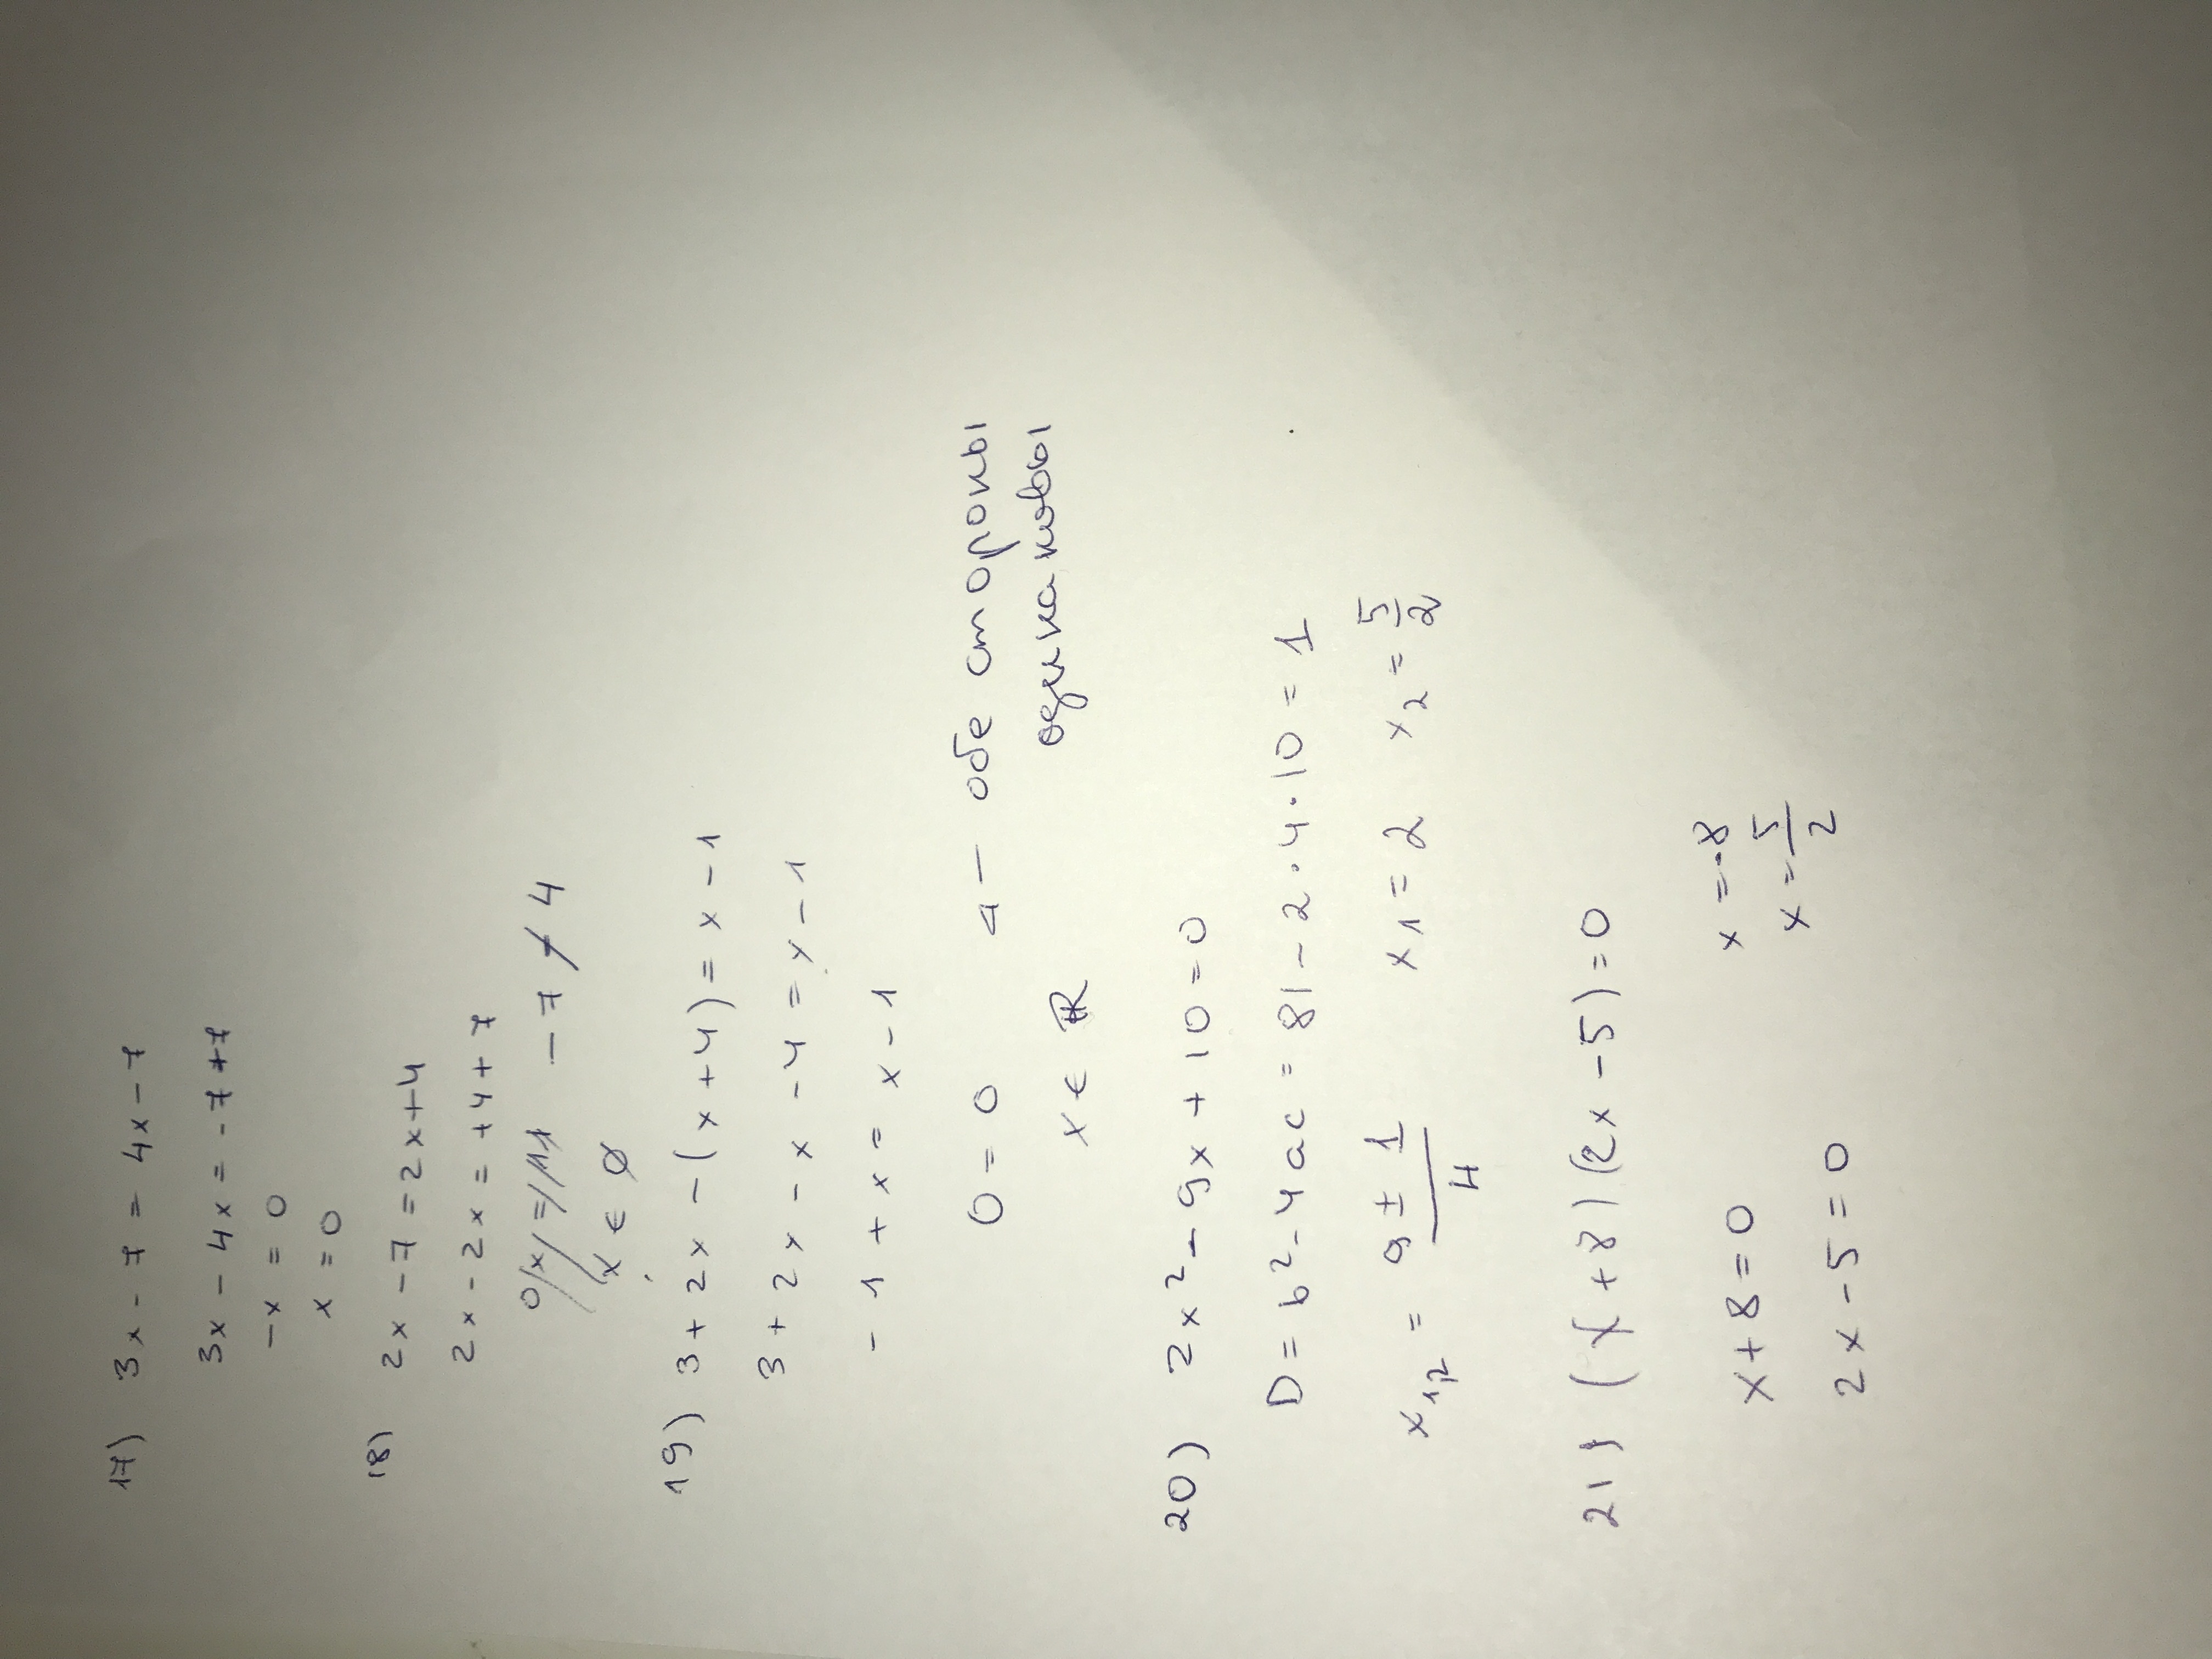 17) 3x - 7 = 4x - 7
3x - 4x = -7 + 7
-x = 0
x = 0
18) 2x - 7 = 2x + 4
2x - 2x = +4 + 7
0/x/=/11 -7 ≠ 4
x ∈ ∅
19) 3 + 2x - (x + 4) = x - 1
3 + 2x - x - 4 = x - 1
-1 + x = x - 1
0 = 0 - обе стороны
одинаковы
x ∈ R
20) 2x² - 9x + 10 = 0
D = b² - 4ac = 81 - 2·4·10 = 1
x₁,₂ = (9 ± 1)/4 x₁ = 2 x₂ = 5/2
21) (x + 8)(2x - 5) = 0
x + 8 = 0 x = -8
2x - 5 = 0 x = 5/2